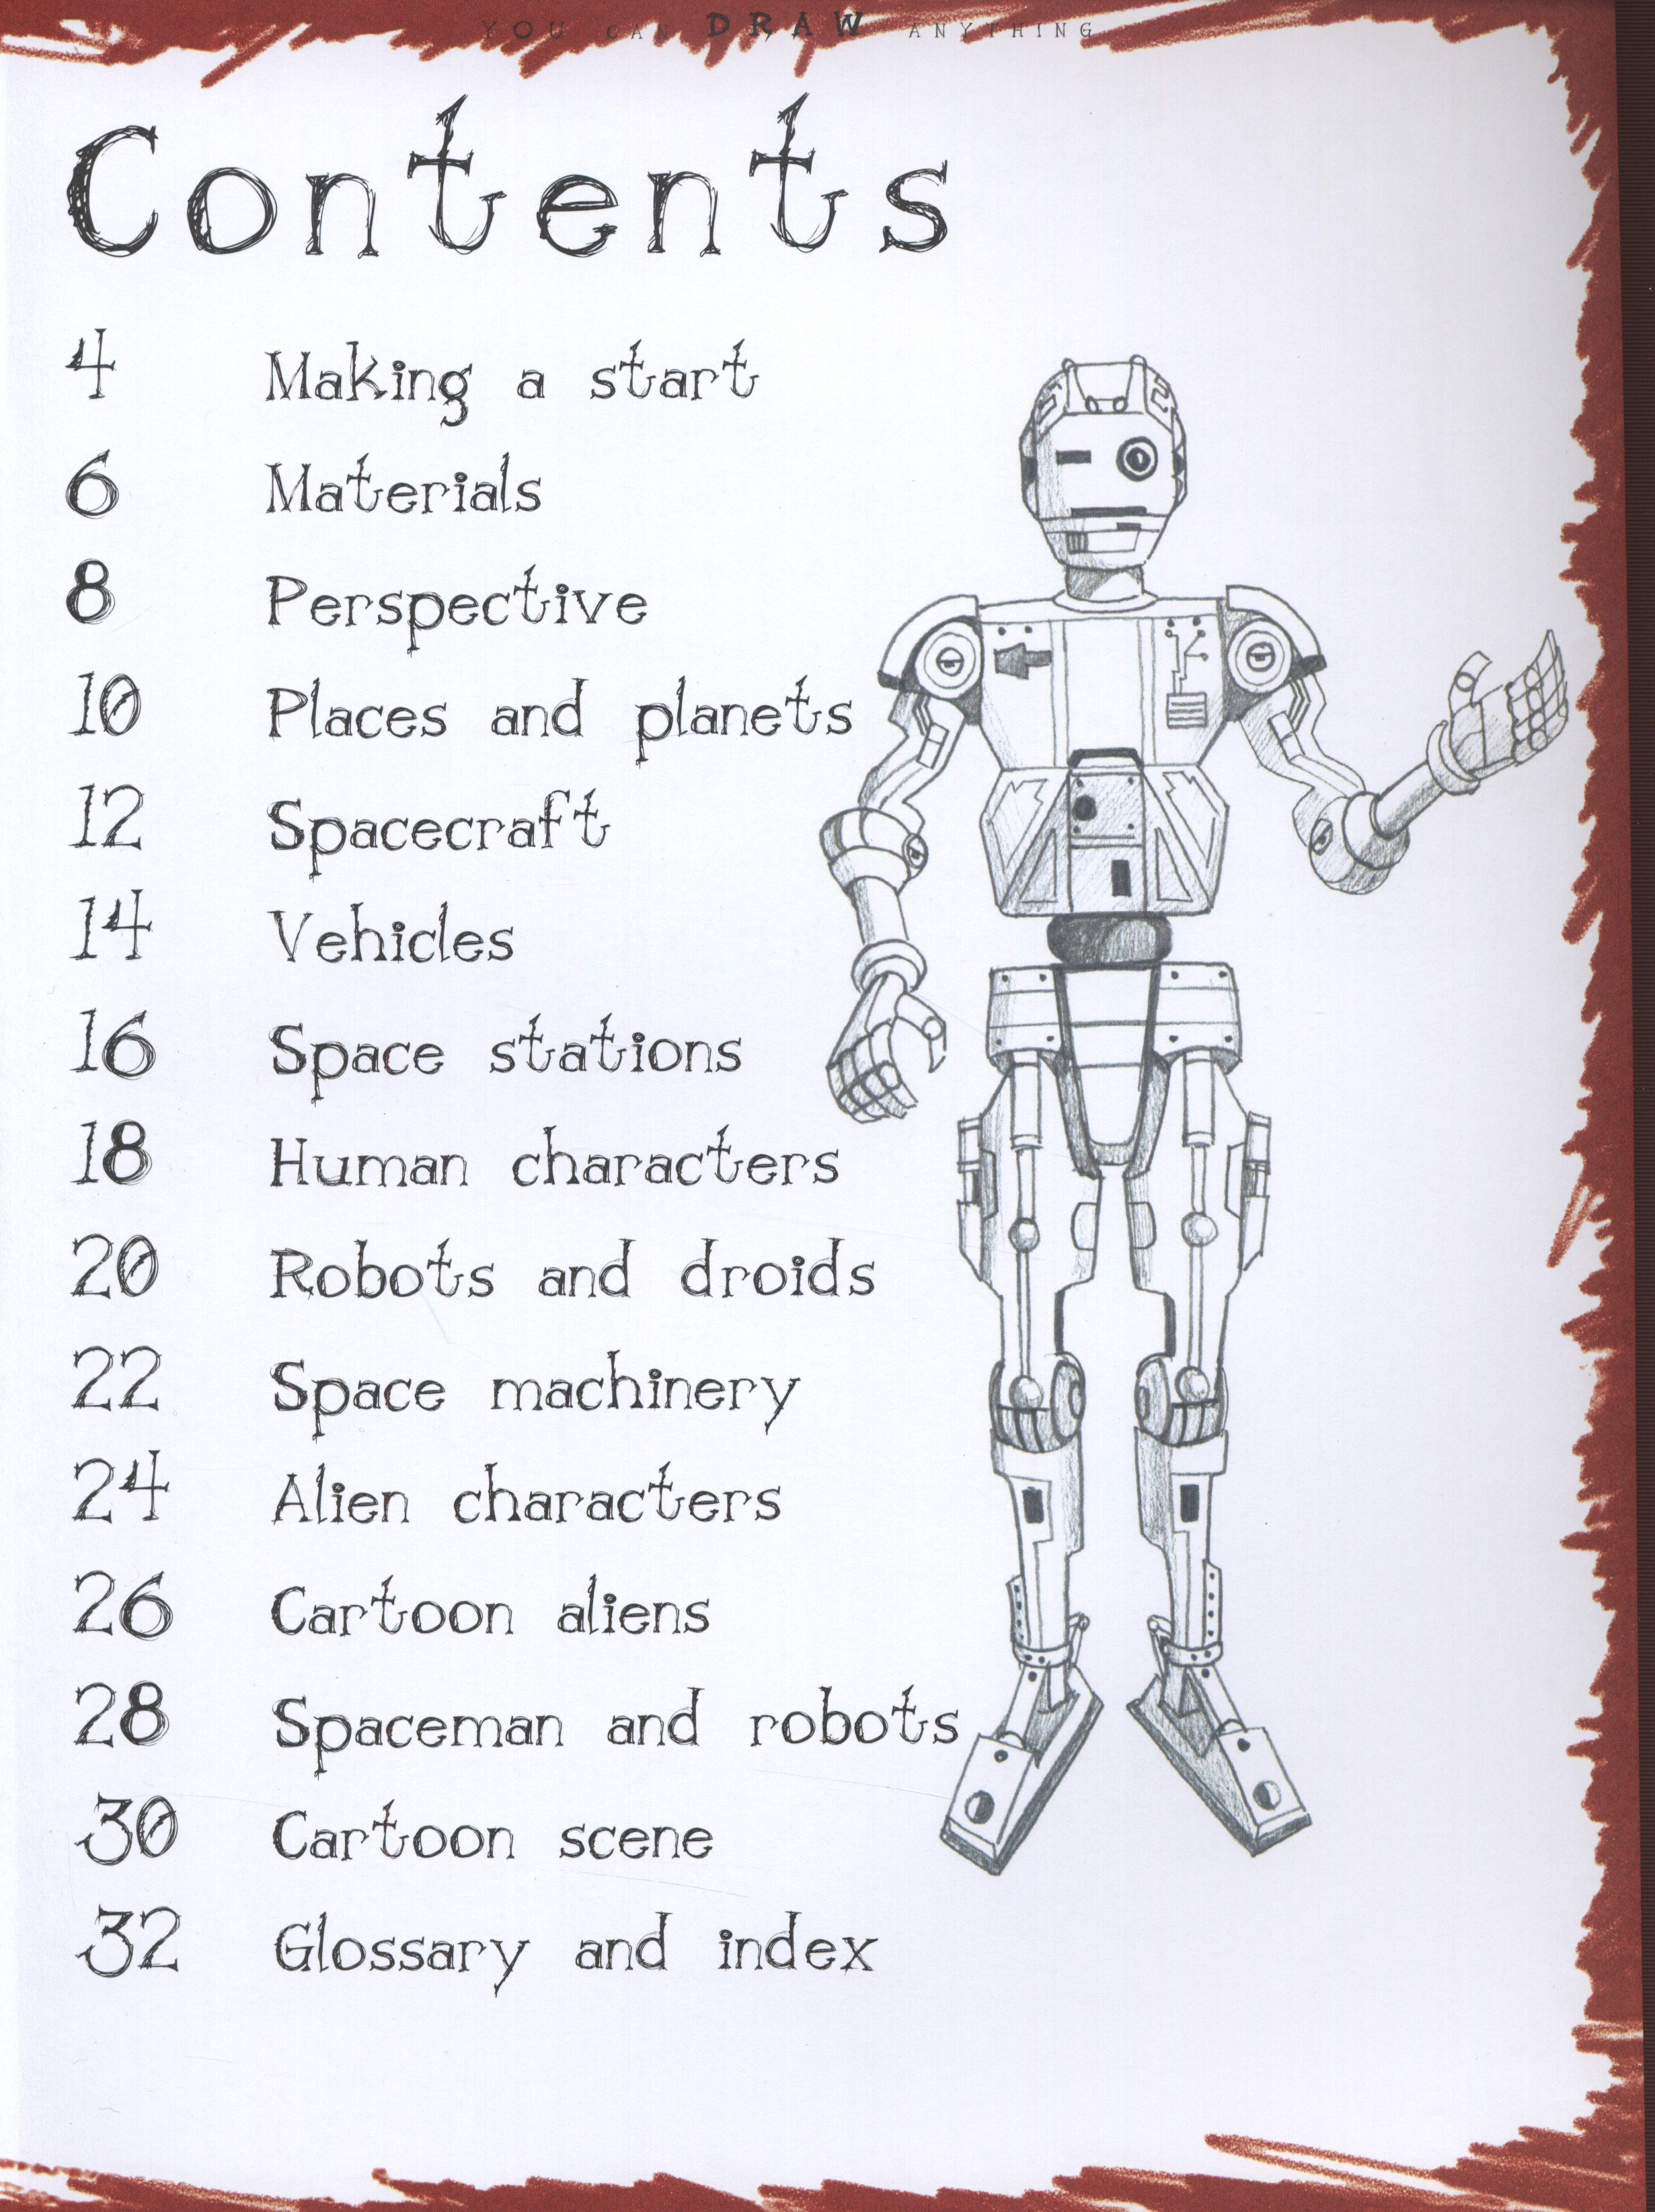 YOU CAN DRAW ANYTHING
Contents
4 Making a start
6 Materials
8 Perspective
10 Places and planets
12 Spacecraft
14 Vehicles
16 Space stations
18 Human characters
20 Robots and droids
22 Space machinery
24 Alien characters
26 Cartoon aliens
28 Spaceman and robots
30 Cartoon scene
32 Glossary and index